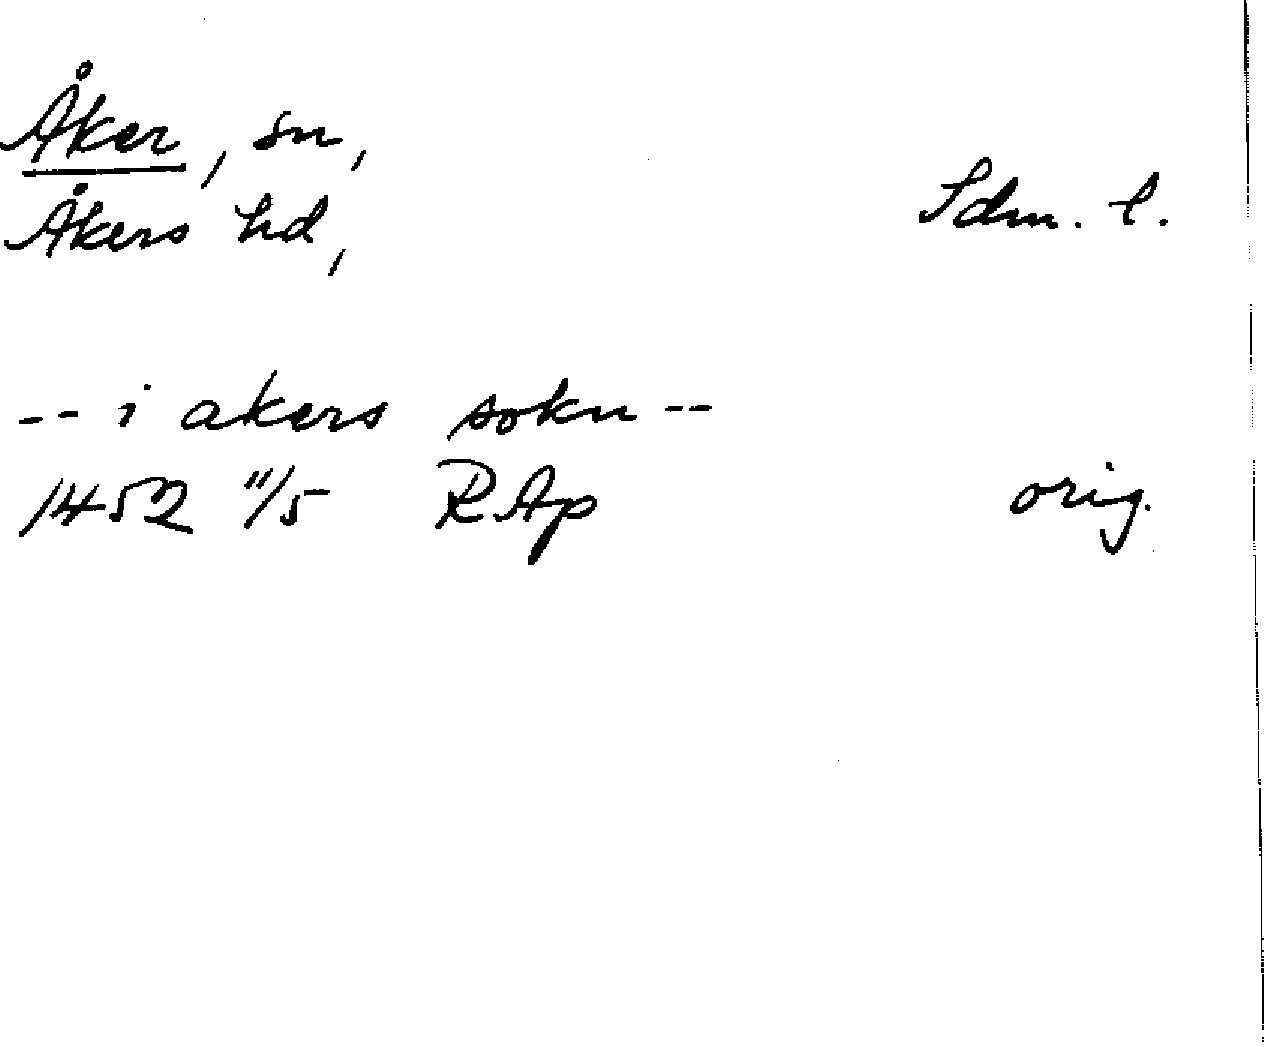 Åker, sn,
Åkers hd, Sdm. l.
-- i akers sokn --
1452 11/5 RAp orig.